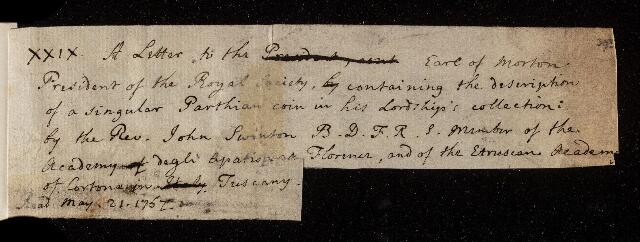 XXIX. A Letter to the President, Earl of Morton
President of the Royal Society, by containing the description
of a singular Parthian coin in his Lordship's collection:
by the Rev. John Swinton B.D.F.R.S. Member of the
Academy of degli Apatisti at Florence, and of the Etruscan Academ
of Cortona in Italy Tuscany.
Read May. 21. 1767.